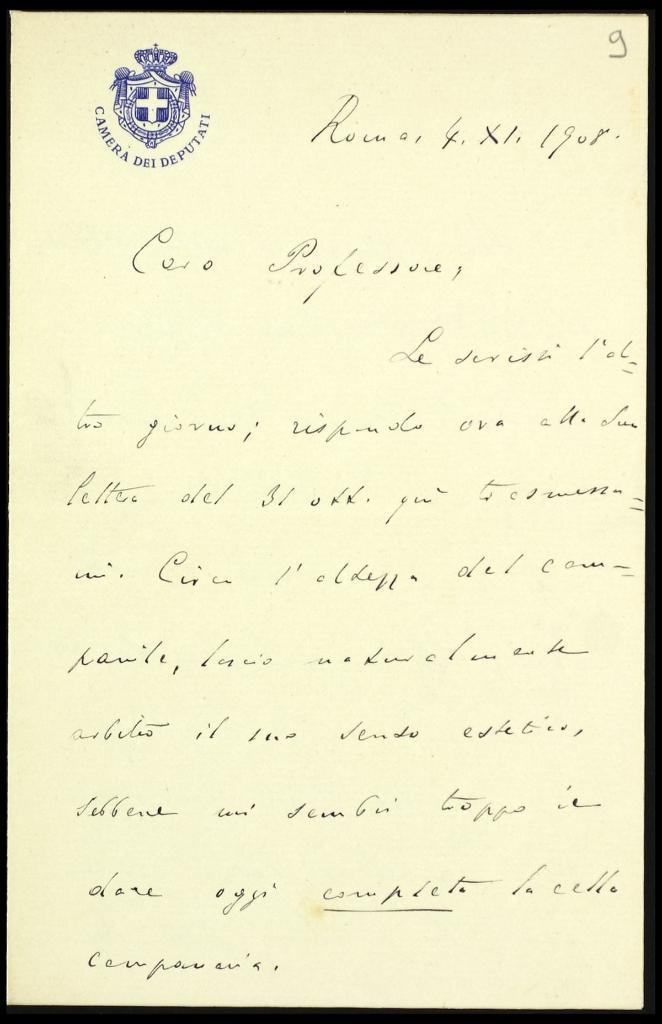 9
CAMERA DEI DEPUTATI
Roma, 4. XI. 1908.
Caro Professore,
Le scrissi l'al=
tro giorno; rispondo ora alla Sua
lettera del 31 ott. qui trasmessa=
mi. Circa l'altezza del cam=
panile, lascio naturalmente
arbitro il suo senso estetico,
sebbene mi sembri troppo il
dare oggi completa la cella
campanaria.